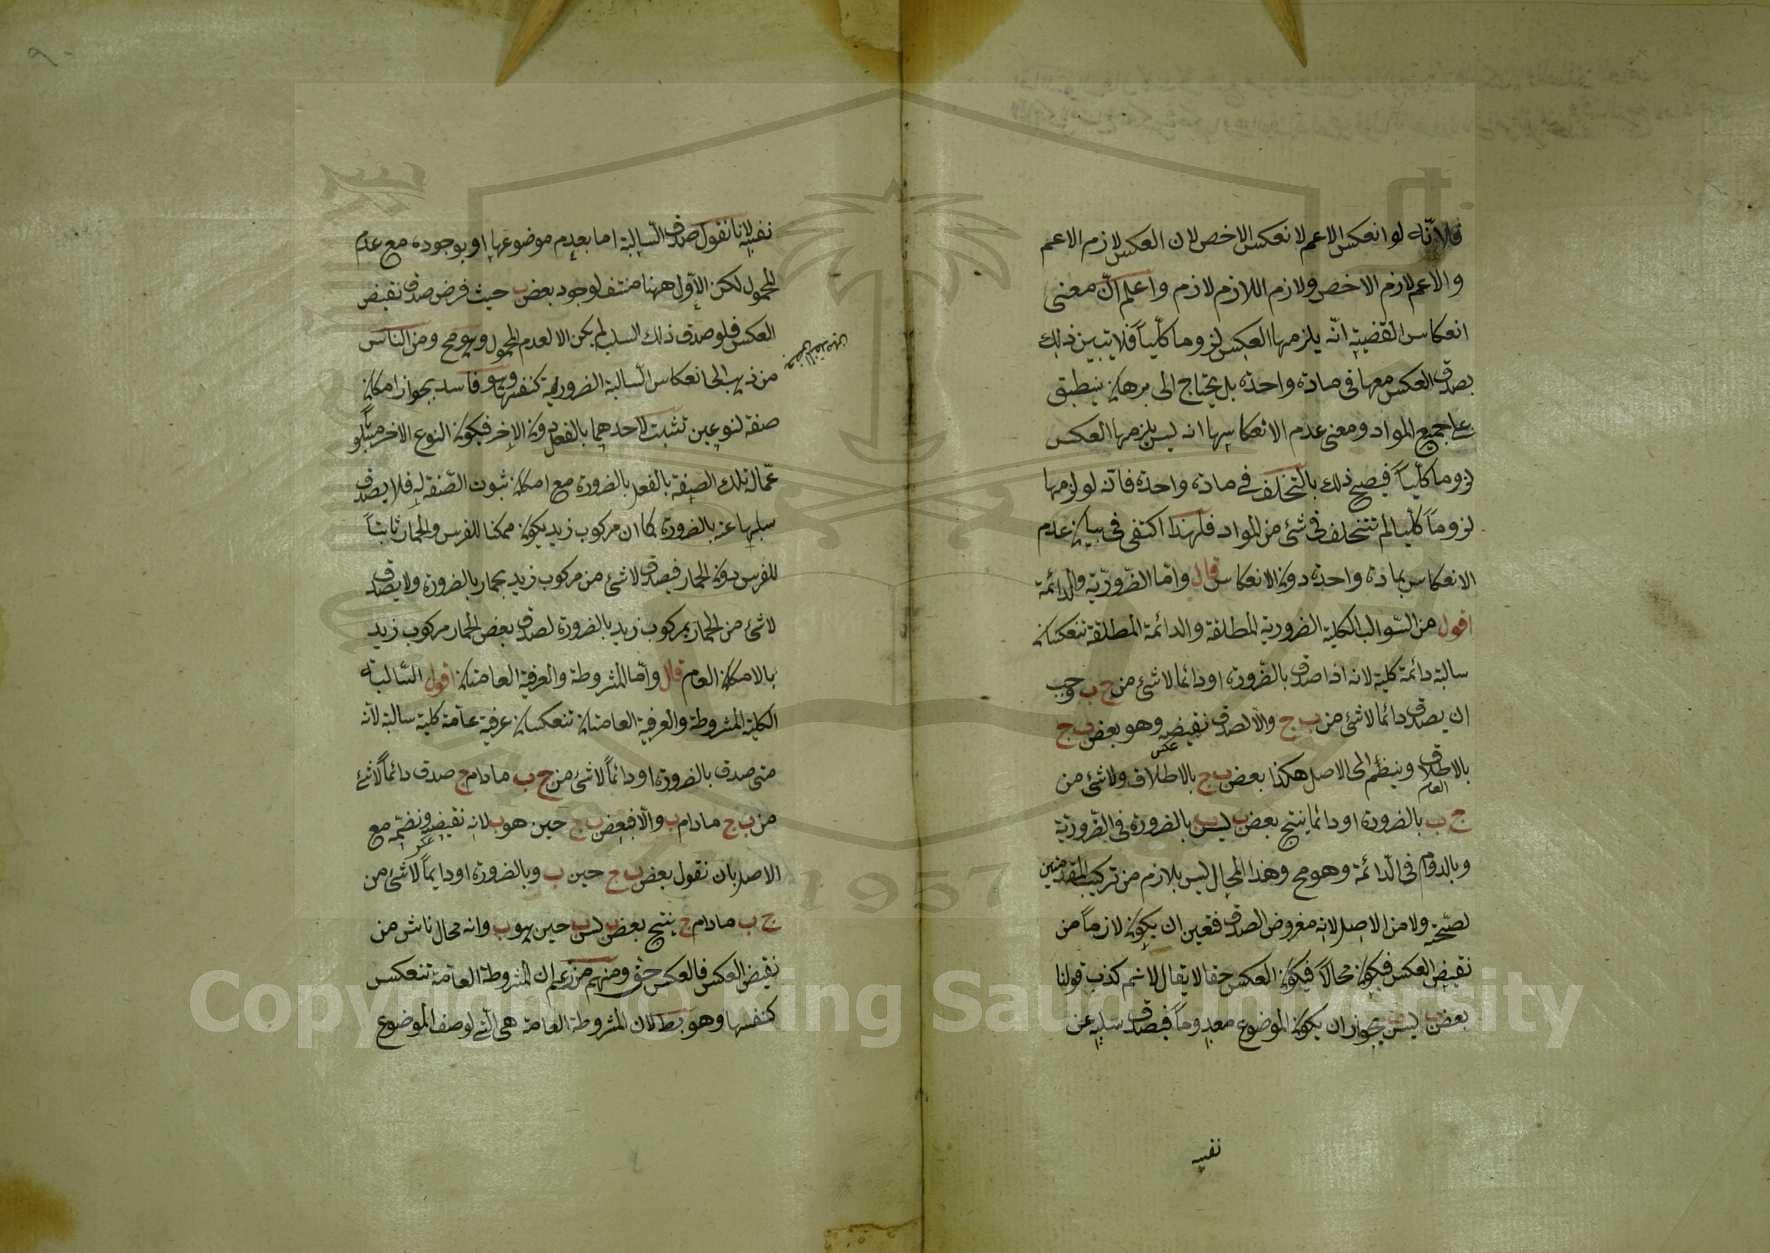 فلانه لو انعكس الاعم لانعكس الاخص لان العكس لازم الاعم
والاعم لازم الاخص ولازم اللازم لازم واعلم ان معنى
انعكاس القضية انه يلزمها العكس لزوما كليا فلا يتبين ذلك
بصدق العكس معها في مادة واحدة بل يحتاج الى برهان ينطبق
على جميع المواد ومعنى عدم الانعكاسها انه ليس يلزمها العكس
لزوما كليا فيصح ذلك بالتخلف في مادة واحدة فانه لو لزمها
لزوما كليا لم تتخلف في شئ من المواد فلهذا اكتفى في بيان عدم
الانعكاس بمادة واحدة دون الانعكاس قال واما الضرورية والدائمة
اقول من السوالب الكلية الضرورية المطلقة والدائمة المطلقة تنعكسان
سالبة دائمة كلية لانه اذا صدق بالضرورة او دائما لا شئ من ج ب وجب
ان يصدق دائما لا شئ من ب ج والا لصدق نقيضه وهو بعض ب ج
عكس
بالاطلاق العام وينظم الى الاصل هكذا بعض ب ج بالاطلاق ولا شئ من
ج ب بالضرورة او دائما ينتج بعض ب ليس ب بالضرورة في الضرورية
وبالدوام في الدائمة وهو مح وهذا المحال ليس بلازم من تركيب المقدمتين
لصحته ولا من الاصل لانه مفروض الصدق فتعين ان يكون لازما من
نقيض العكس فيكون محالا فيكون العكس حقا لا يقال لا نم كذب قولنا
بعض ب ليس ب لجواز ان يكون الموضوع معدوما فيصدق سلبه عن
نفسه
نفسه لانا نقول صدق السالبة اما بعدم موضوعها او بوجوده مع عدم
المحمول لكن الاول ههنا منتف لوجود بعض ب حيث فرض صدق نقيض
العكس فلو صدق ذلك السلب لم يكن الا لعدم المحمول وهو مح ومن الناس
من ذهب الى انعكاس السالبة الضرورية كنفسها وهو فاسد لجواز امكان
صفة لنوعين تثبت لاحدهما بالفعل دون الاخر فيكون النوع الاخر مسلوبا
عما له تلك الصفة بالفعل بالضرورة مع امكان ثبوت الصفة له فلا يصدق
سلبها عنه بالضرورة كما ان مركوب زيد يكون ممكنا للفرس والحمار ثابتا
للفرس دون الحمار فيصدق لا شئ من مركوب زيد بحمار بالضرورة ولا يصدق
لا شئ من الحمار بمركوب زيد بالضرورة لصدق بعض الحمار مركوب زيد
بالامكان العام قال واما المشروطة والعرفية العامتان اقول السالبة
الكلية المشروطة والعرفية العامتان تنعكسان عرفية عامة كلية سالبة لانه
متى صدق بالضرورة او دائما لا شئ من ج ب مادام ج صدق دائما لا شئ
من ب ج مادام ب والا فبعض ب ج حين هو ب لانه نقيضه ونضمه مع
الاصل بان نقول بعض ب ج حين ب وبالضرورة او دايما لا شئ من
ج ب مادام ج ينتج بعض ب ليس ب حين هو ب وانه محال ناش من
نقيض العكس فالعكس حق ومنهم من زعم ان المشروطة العامة تنعكس
كنفسها وهو بط لان المشروطة العامة هي التي لوصف الموضوع
1957
Copyright © King Saud University